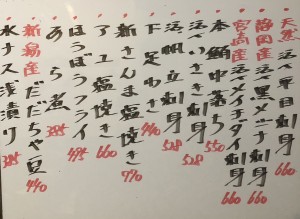 天然 活〆平目刺身 660
静岡産 活〆黒メジナ刺身 660
宮崎産 活〆メイチダイ刺身 660
本鮪中落ち 550
活べいか刺身 528
活帆立刺身 528
下足わさ 440
新さんま塩焼き 770
アユ塩焼き 660
ほうぼうフライ 495
あら煮 385
新潟産 だだちゃ豆 440
水ナス浅漬り 385